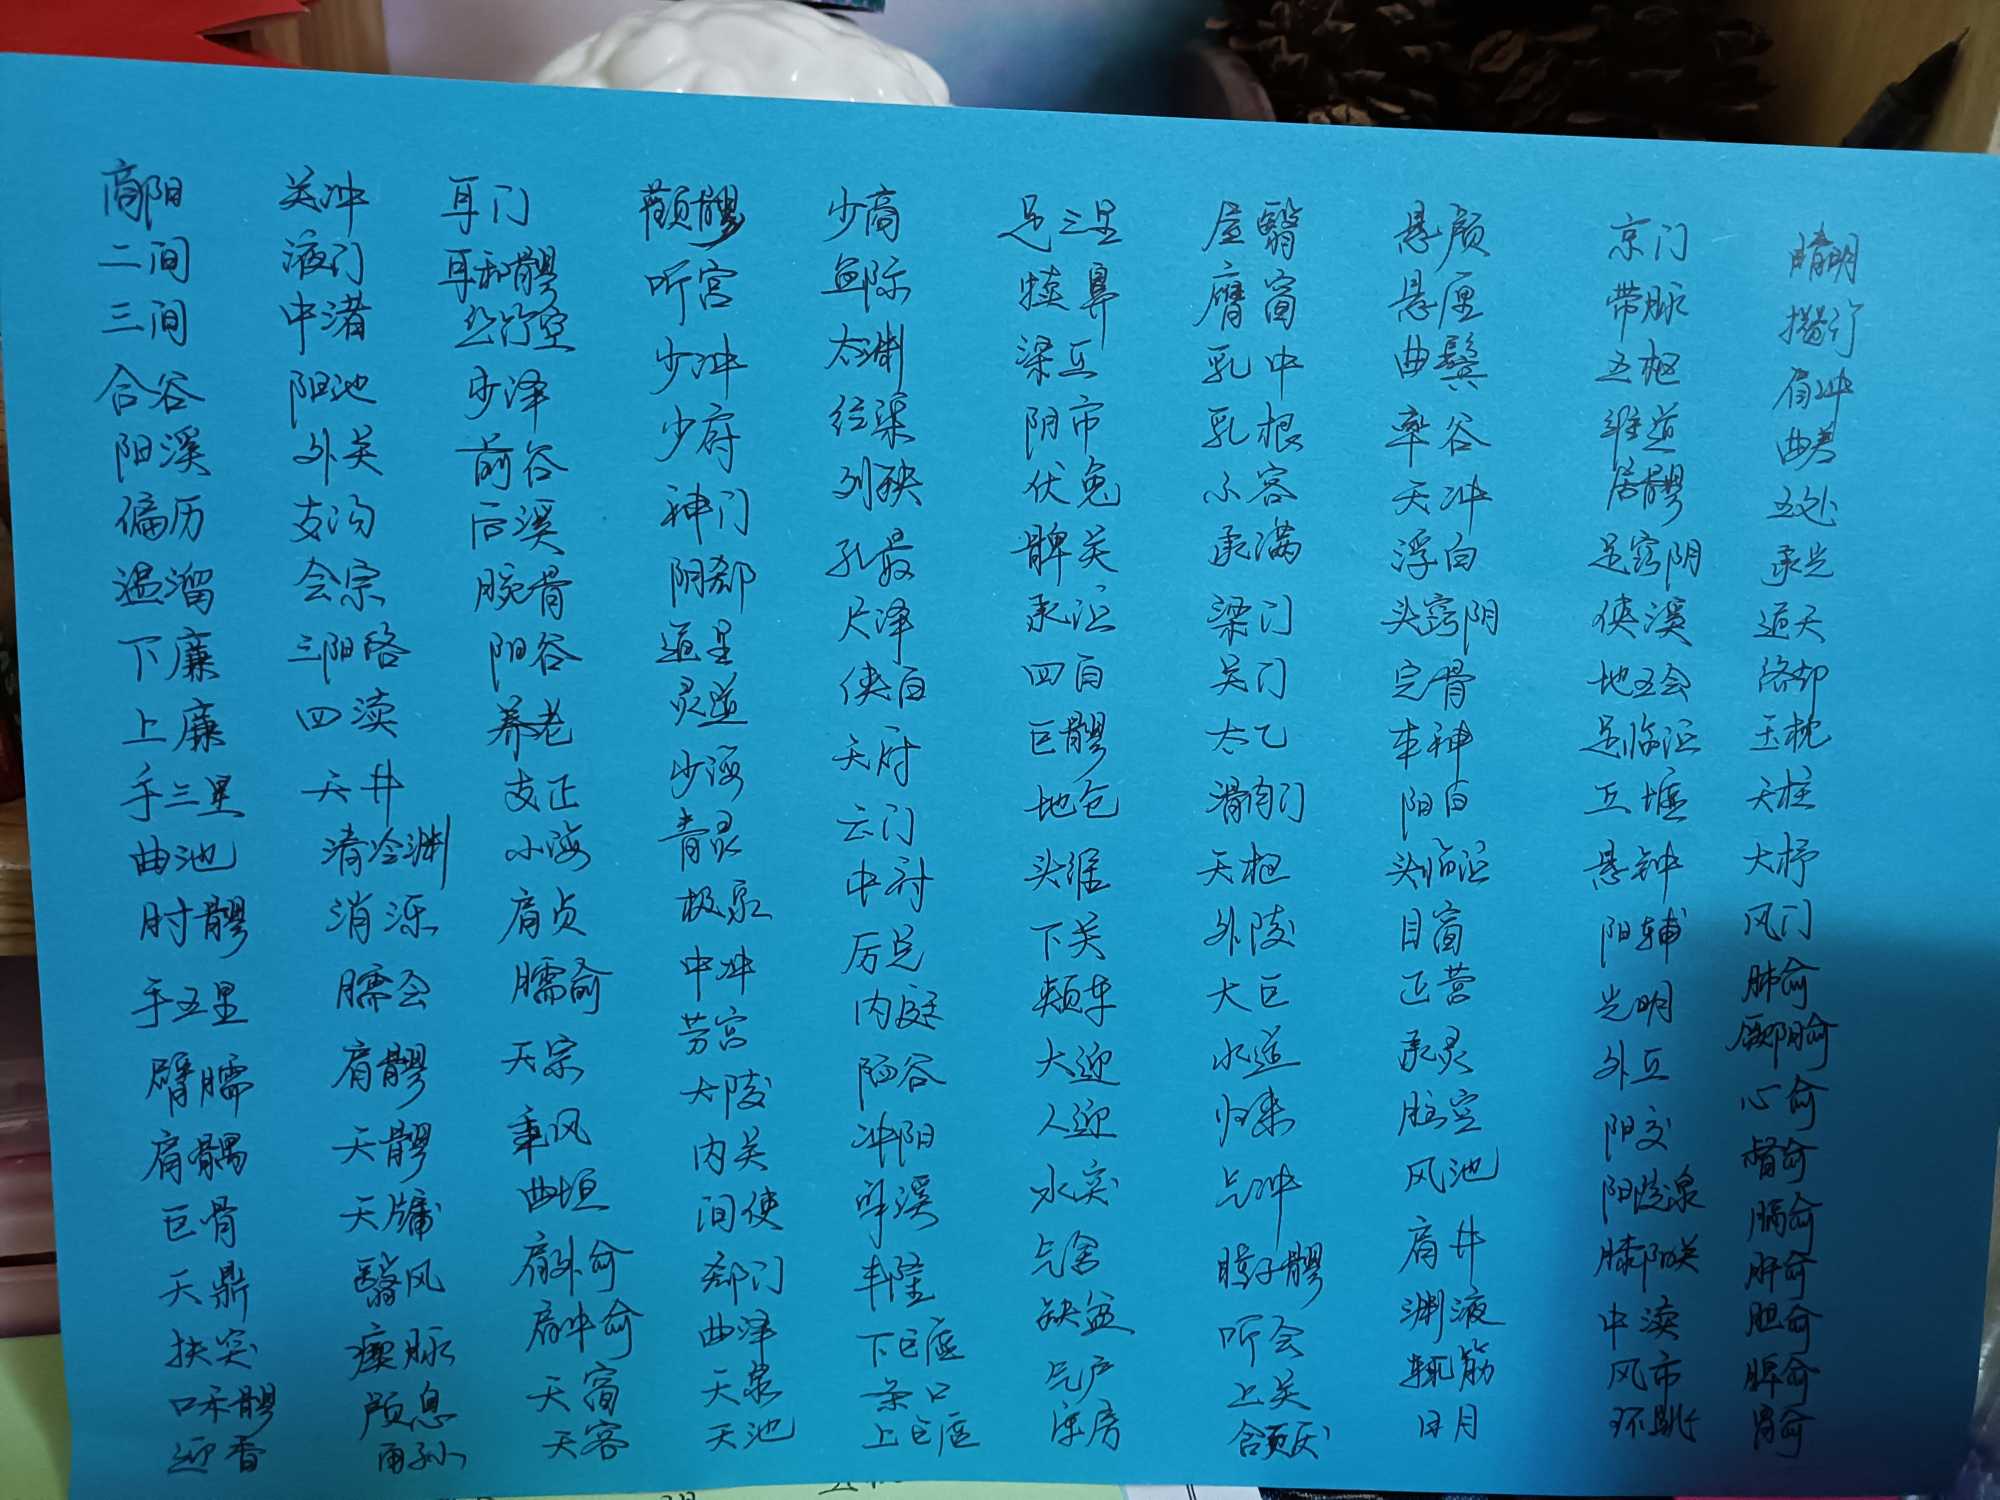 商阳
二间
三间
合谷
阳溪
偏历
温溜
下廉
上廉
手三里
曲池
肘髎
手五里
臂臑
肩髃
巨骨
天鼎
扶突
口禾髎
迎香
关冲
液门
中渚
阳池
外关
支沟
会宗
三阳络
四渎
天井
清冷渊
消泺
臑会
肩髎
天髎
天牖
翳风
瘈脉
颅息
角孙
耳门
耳和髎
丝竹空
少泽
前谷
后溪
腕骨
阳谷
养老
支正
小海
肩贞
臑俞
天宗
秉风
曲垣
肩外俞
肩中俞
天窗
天容
颧髎
听宫
少冲
少府
神门
阴郄
通里
灵道
少海
青灵
极泉
中冲
劳宫
大陵
内关
间使
郄门
曲泽
天泉
天池
少商
鱼际
太渊
经渠
列缺
孔最
尺泽
侠白
天府
云门
中府
厉兑
内庭
陷谷
冲阳
解溪
丰隆
下巨虚
条口
上巨虚
足三里
犊鼻
梁丘
阴市
伏兔
髀关
承泣
四白
巨髎
地仓
头维
下关
颊车
大迎
人迎
水突
气舍
缺盆
气户
库房
屋翳
膺窗
乳中
乳根
不容
承满
梁门
关门
太乙
滑肉门
天枢
外陵
大巨
水道
归来
气冲
瞳子髎
听会
上关
颔厌
悬颅
悬厘
曲鬓
率谷
天冲
浮白
头窍阴
完骨
本神
阳白
头临泣
目窗
正营
承灵
脑空
风池
肩井
渊液
辄筋
日月
京门
带脉
五枢
维道
居髎
足窍阴
侠溪
地五会
足临泣
丘墟
悬钟
阳辅
光明
外丘
阳交
阳陵泉
膝阳关
中渎
风市
环跳
睛明
攒竹
眉冲
曲差
五处
承光
通天
络却
玉枕
天柱
大杼
风门
肺俞
厥阴俞
心俞
督俞
膈俞
肝俞
胆俞
脾俞
胃俞